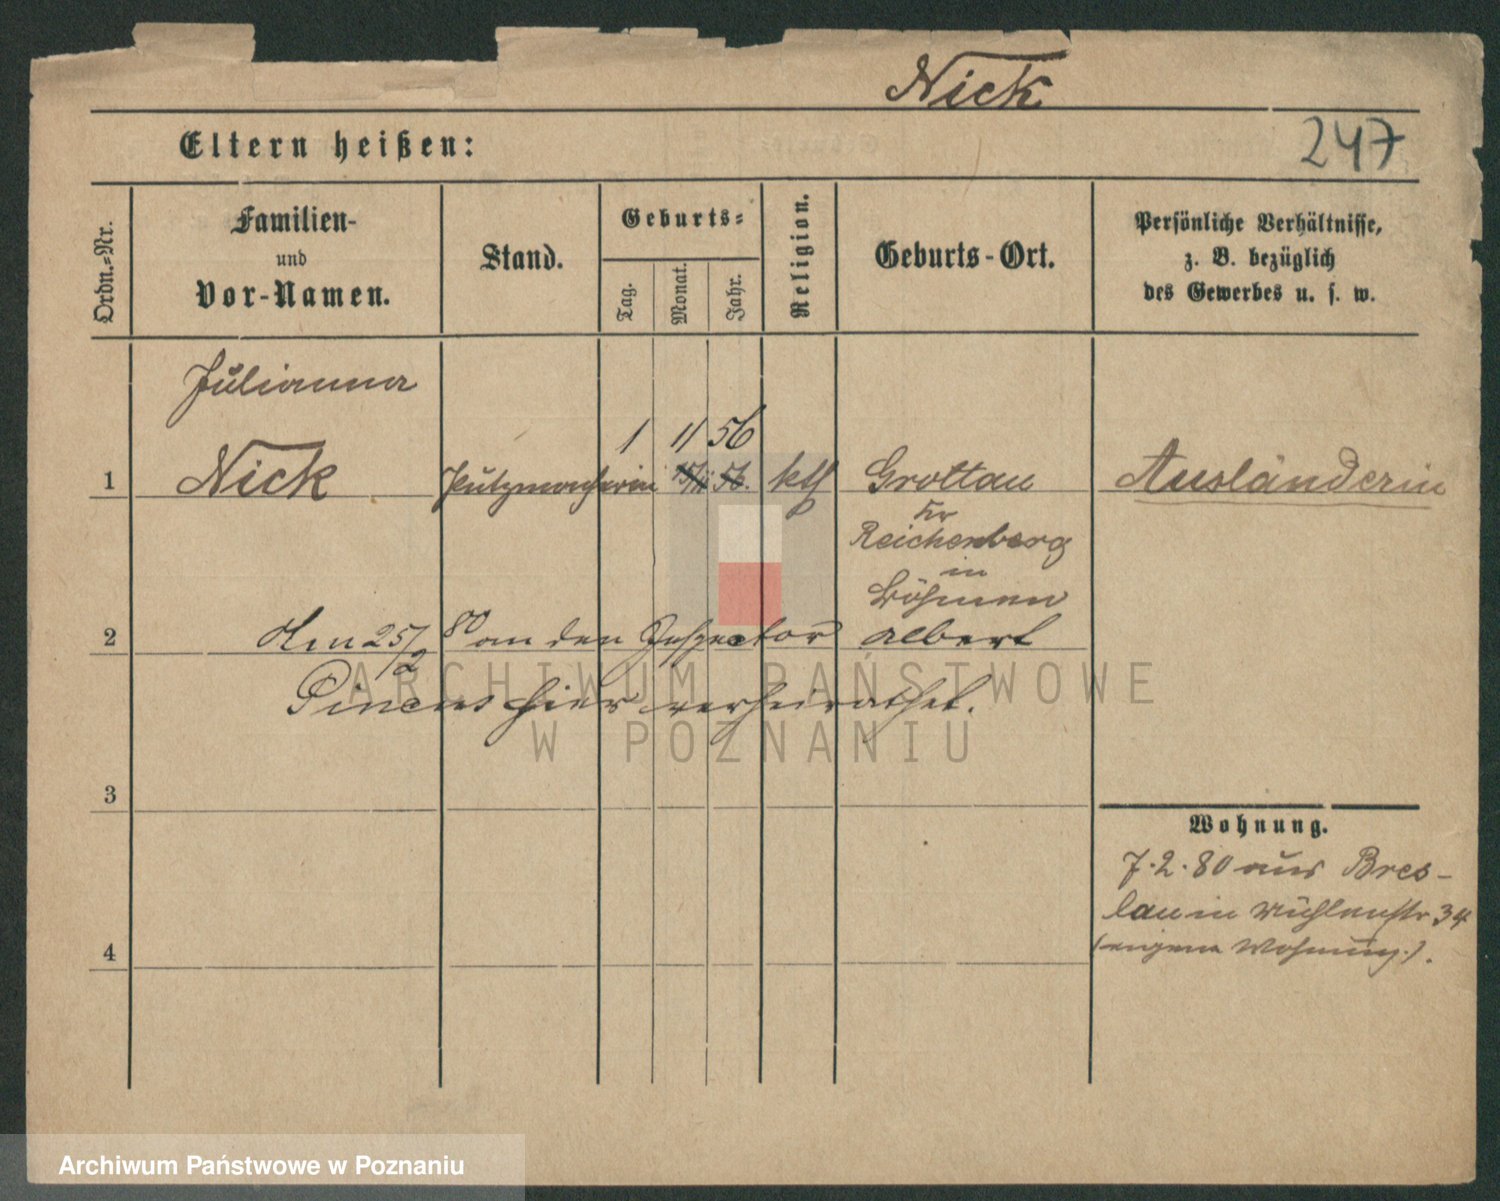 Nick
247
Eltern heißen:
Ordn.=Nr.
Familien-
und
Vor-Namen.
Stand.
Geburts=
Tag.
Monat.
Jahr.
Religion.
Geburts-Ort.
Persönliche Verhältnisse,
z. B. bezüglich
des Gewerbes u. s. w.
Julianna
1 11 56
1 Nick Putzmacherin 56. kth Grottau Ausländerin
Kr
Reichenberg
in
Böhmen
2 Am 25/2 80 an den Inspector Albert
Pincus hier verheirathet.
3
Wohnung.
7.2.80 aus Bres-
lau in Mühlenstr 34
(eigene Wohnung.).
4
ARCHIWUM PAŃSTWOWE
W POZNANIU
Archiwum Państwowe w Poznaniu